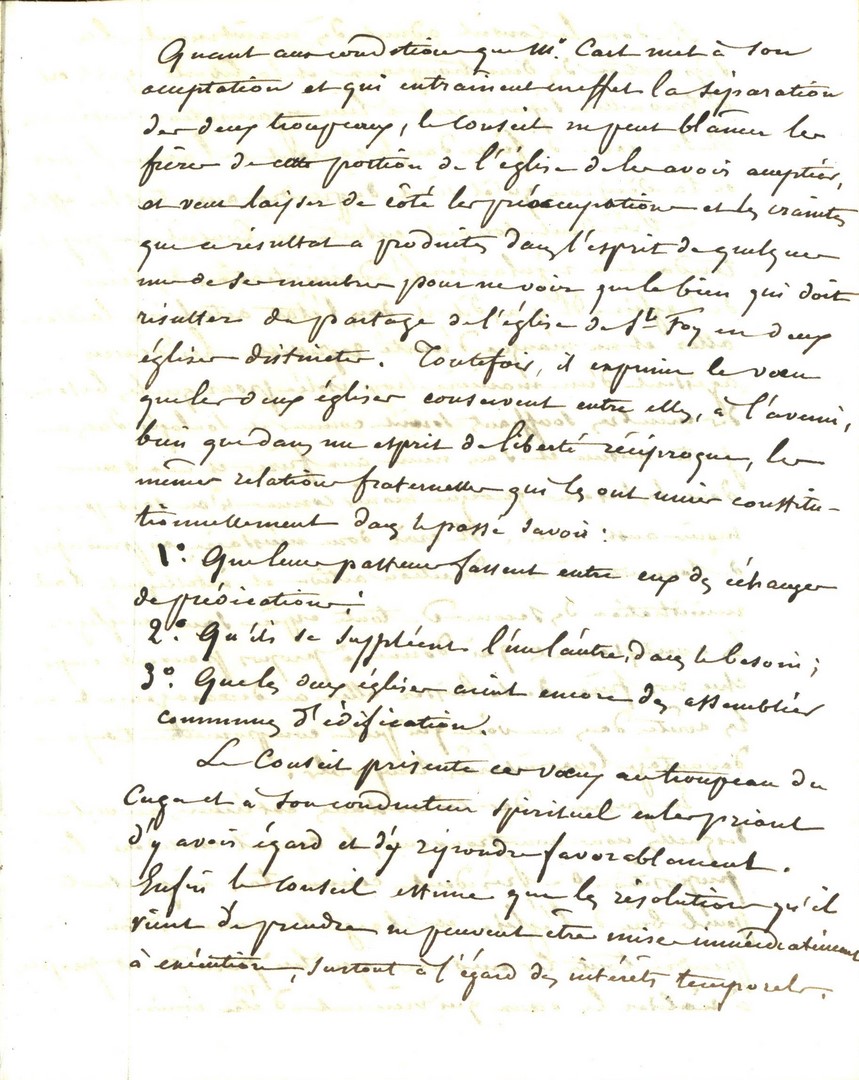 Quant aux conditions que Mr. Cart met à son
acceptation et qui entrainent en effet la séparation
des deux troupeaux, le Conseil ne peut blâmer les
frères de cette portion de l'église de les avoir acceptées,
et veut laisser de côté les préoccupations et les craintes
que ce résultat a produites dans l'esprit de quelques
uns de ses membres pour ne voir que le bien qui doit
résulter du partage de l'église de Ste Foy en deux
églises distinctes. Toutefois, il exprime le vœu
que les deux églises conservent entre elles, à l'avenir,
bien que dans un esprit de liberté réciproque, les
mêmes relations fraternelles qui les ont unies constitu-
tionnellement dans le passé savoir :
1° Que leurs pasteurs fassent entre eux des échanges
de prédications ;
2°. Qu'ils se suppléent l'un l'autre, dans le besoin ;
3°. Que les deux églises aient encore des assemblées
communes d'édification.
Le Conseil présente ces vœux au troupeau du
et à son conducteur spirituel en les priant
d'y avoir égard et d'y répondre favorablement.
Enfin le Conseil estime que les résolutions qu'il
vient de prendre ne peuvent être mises immédiatement
à exécution, surtout à l'égard des intérêts temporels.